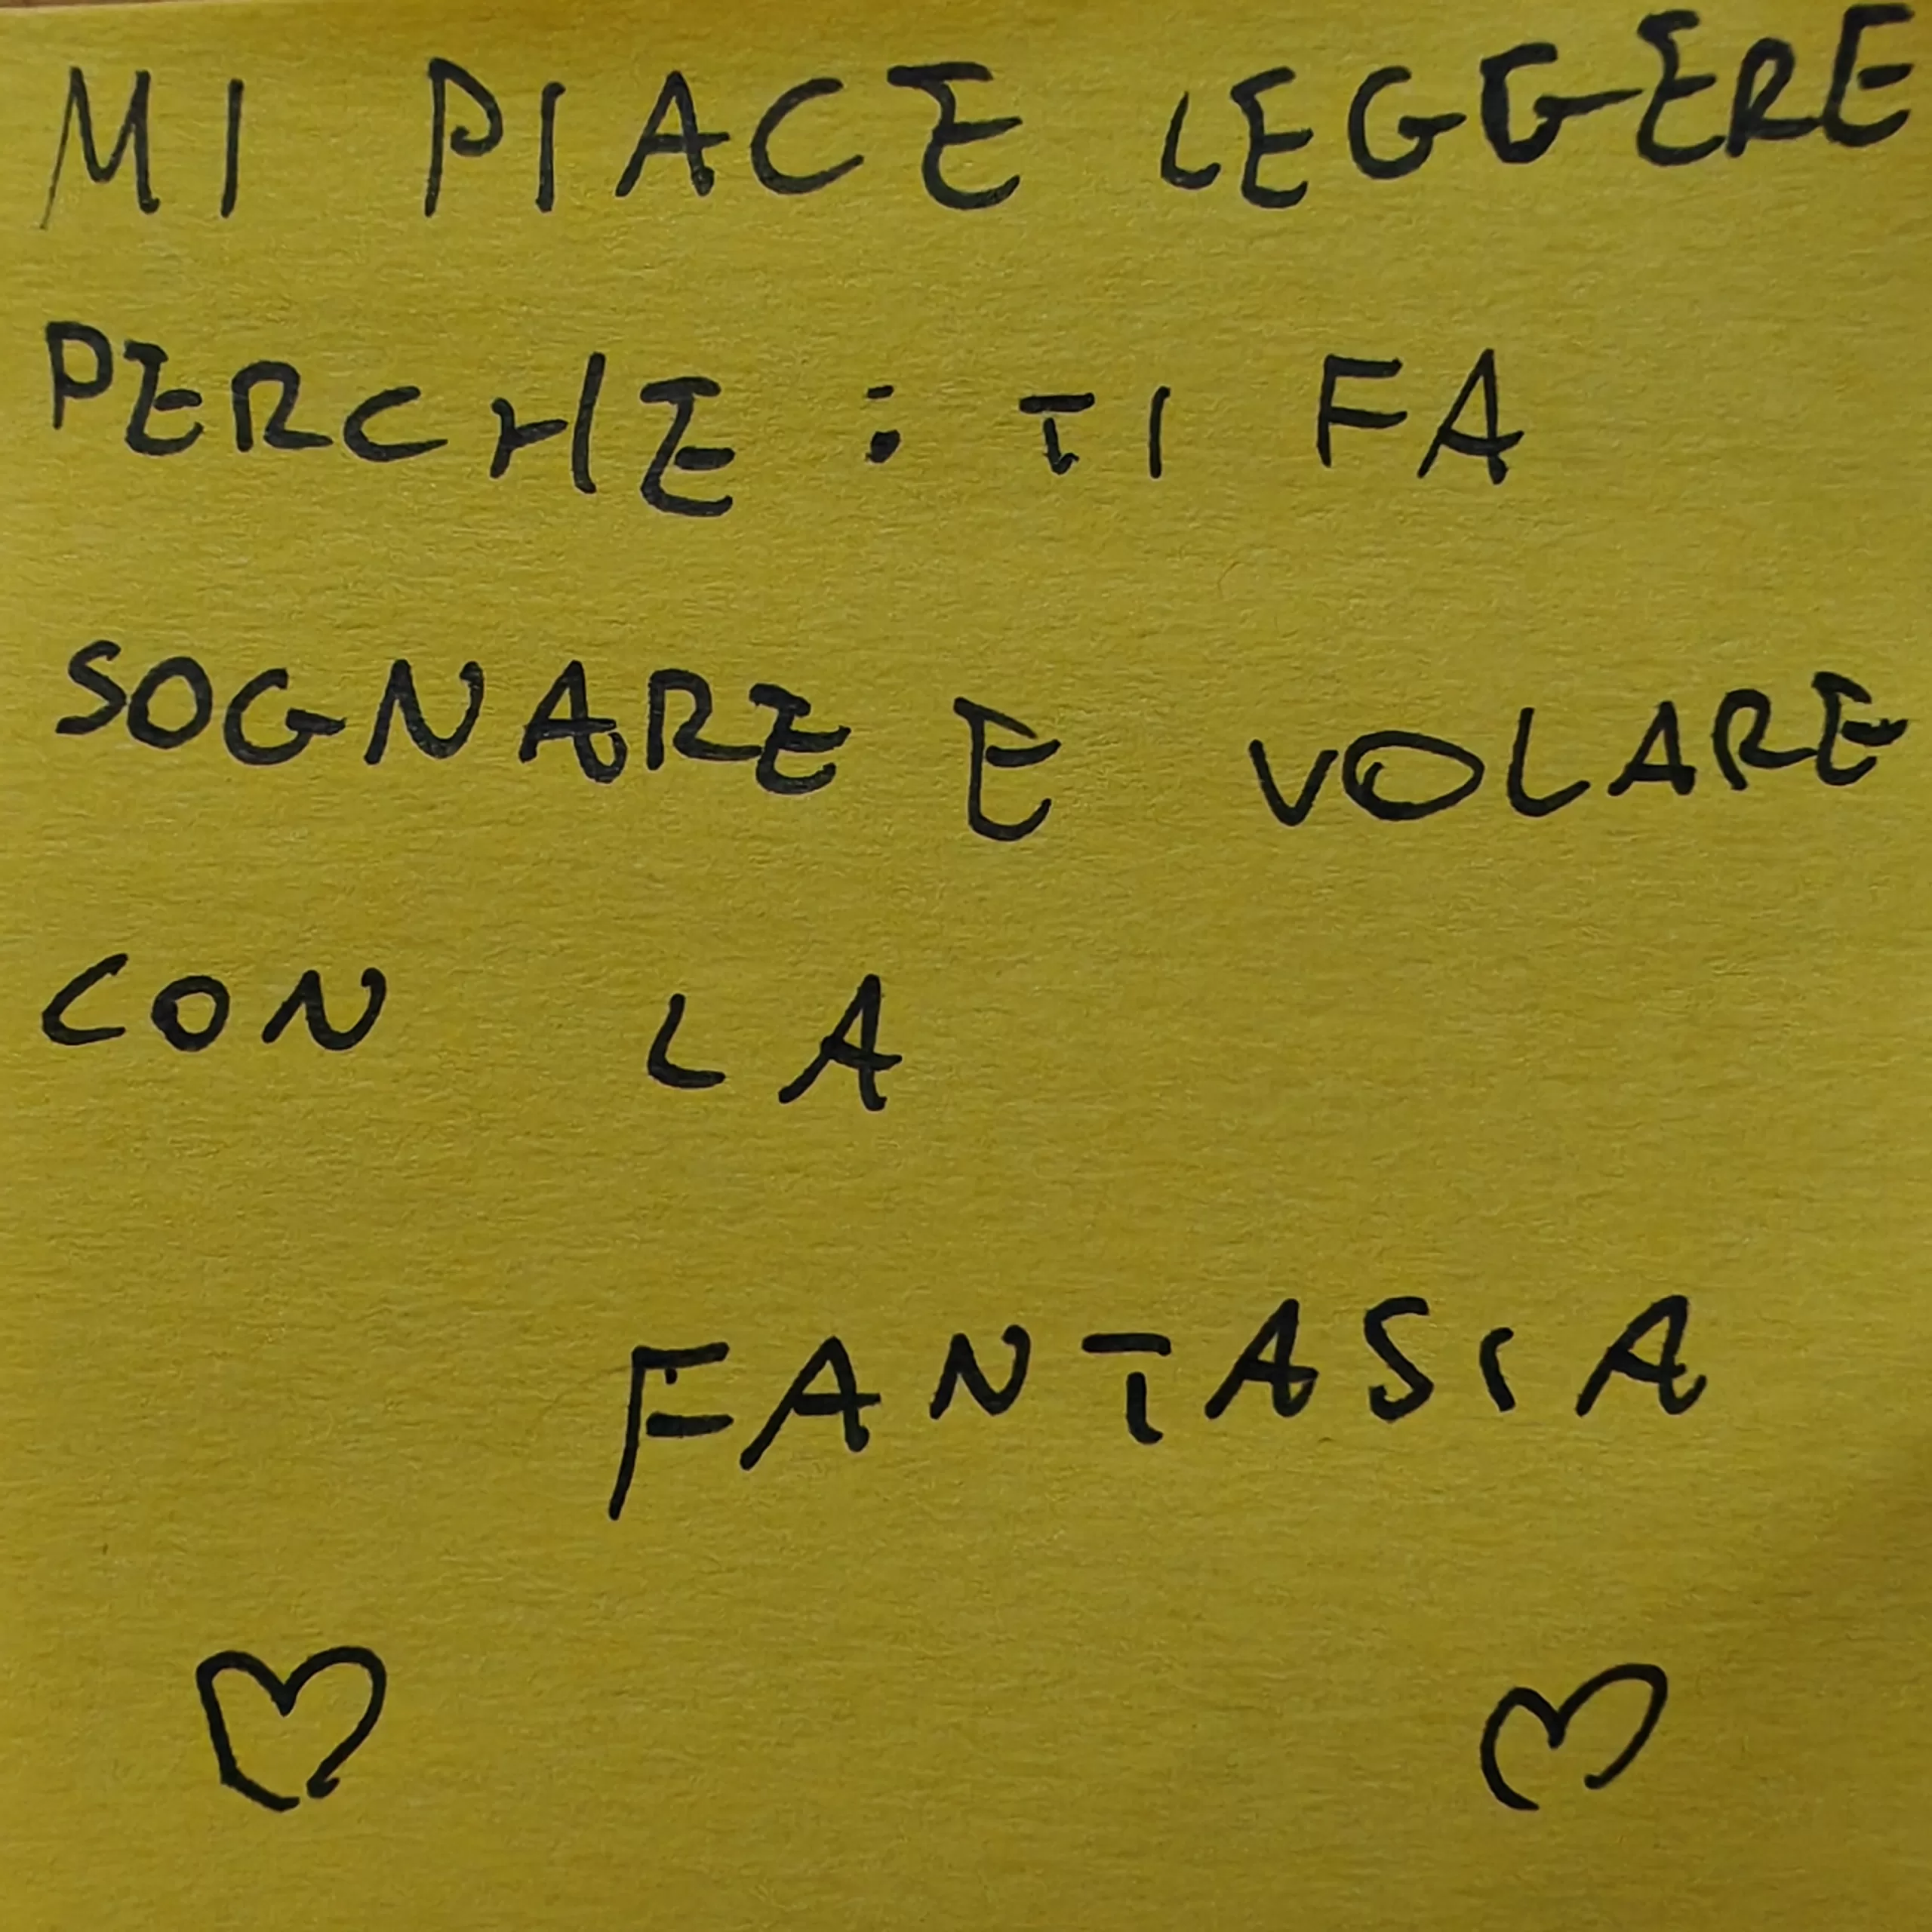 MI PIACE LEGGERE
PERCHE : TI FA
SOGNARE E VOLARE
CON LA
FANTASIA